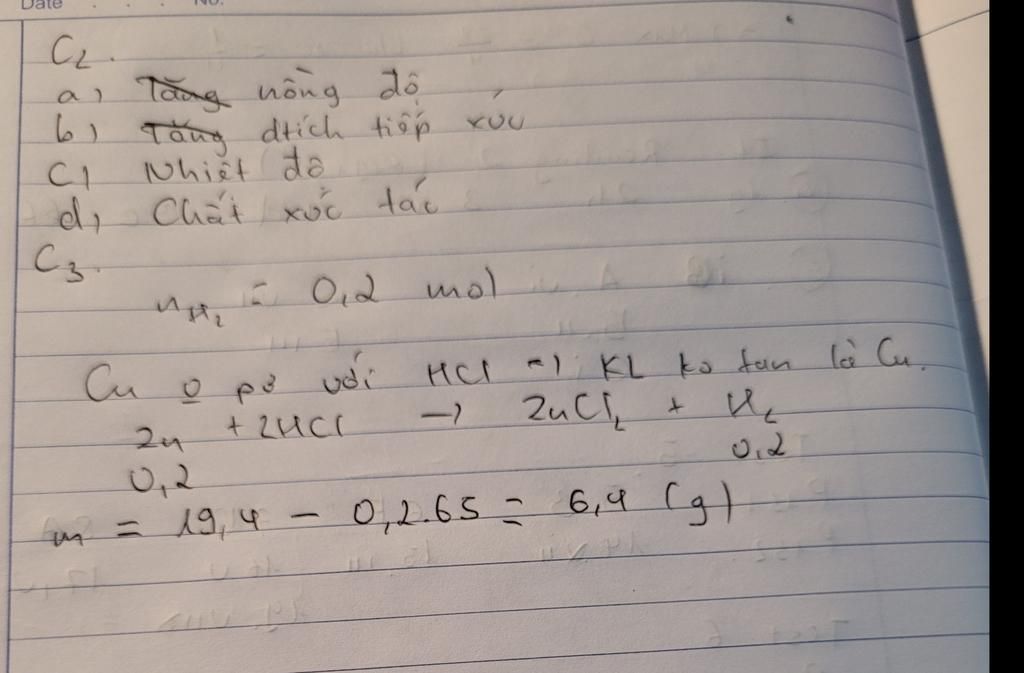 Date . . . No.
C2.
a) Tăng nồng độ
b) Tăng dtích tiếp xúc
c) Nhiệt độ
d) Chất xúc tác
C3.
nH2 = 0,2 mol
Cu 0 pư với HCl => KL ko tan là Cu.
Zn + 2HCl -> ZnCl2 + H2
0,2 0,2
m = 19,4 - 0,2.65 = 6,4 (g)